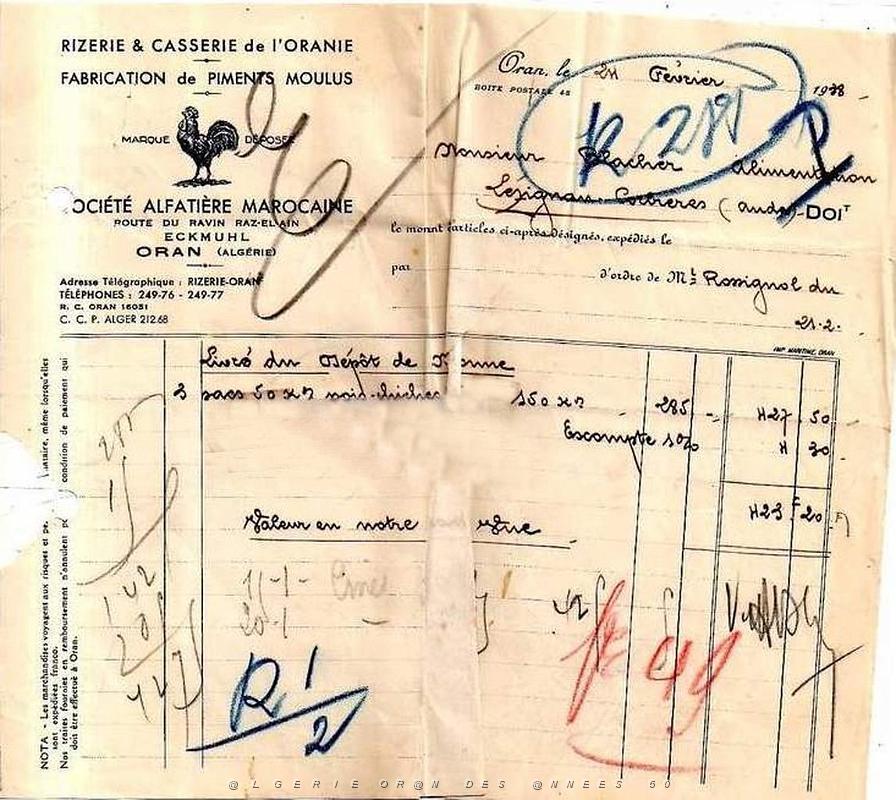 RIZERIE & CASSERIE de l'ORANIE
FABRICATION de PIMENTS MOULUS
MARQUE DÉPOSÉE
SOCIÉTÉ ALFATIÈRE MAROCAINE
ROUTE DU RAVIN RAZ-EL-AIN
ECKMUHL
ORAN (ALGÉRIE)
Adresse Télégraphique : RIZERIE-ORAN
TÉLÉPHONES : 249-76 - 249-77
R. C. ORAN 16051
C. C. P. ALGER 212.68
Oran, le 24 Février 1938
BOITE POSTALE 48
R 285
Monsieur Blacher Alimentation
Lezignan-Corbieres (aude) DOIT
le montt d'articles ci-après désignés, expédiés le
par d'ordre de Mr Rossignol du
21.2.
IMP. MARITIME, ORAN
Livré du Dépôt de
3 sacs 50 Ks pois-chiches 150 Ks 285 427 50
Escompte 1% 4 30
423 F 20
Valeur en notre
11-1-
20-1 -
142
285
427
R 1/2
49
NOTA - Les marchandises voyagent aux risques et
sont expédiées franco.
Nos traites fournies en remboursement n'annulent
condition de paiement qui
doit être effectué à Oran.
même lorsqu'elles
@LGERIE OR@N DES @NNEES 50